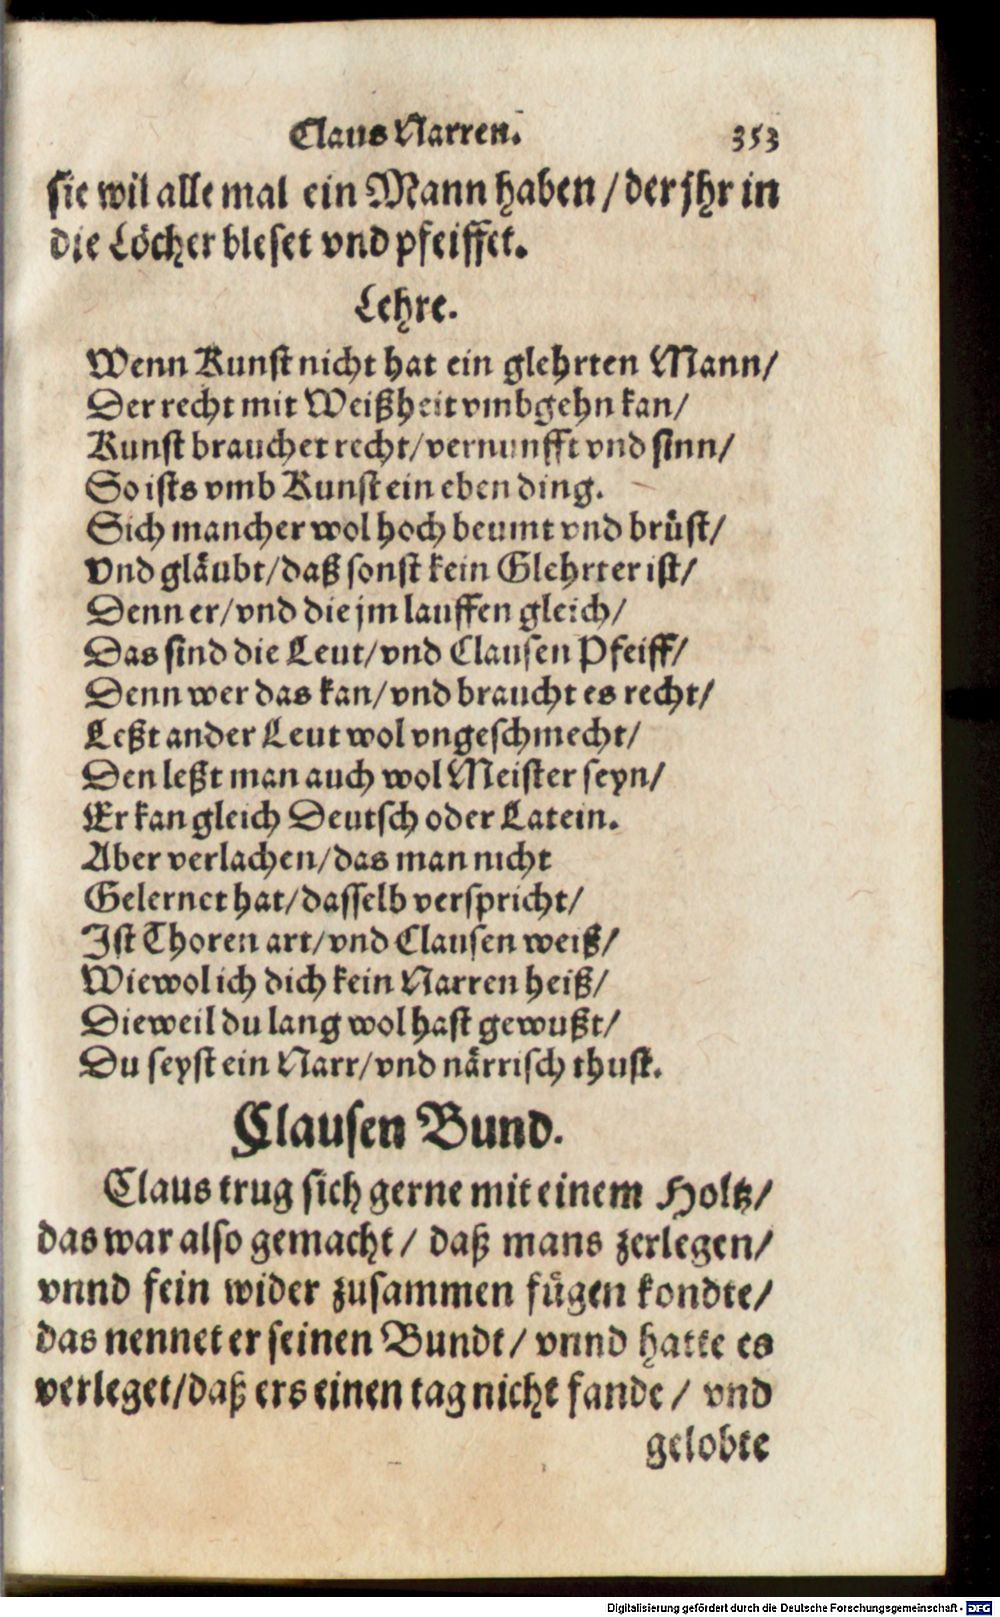 Claus Narren. 353
sie wil alle mal ein Mann haben / der jhr in
die Löcher bleset vnd pfeiffet.
Lehre.
Wenn Kunst nicht hat ein glehrten Mann/
Der recht mit Weißheit vmbgehn kan/
Kunst brauchet recht/vernunfft vnd sinn/
So ists vmb Kunst ein eben ding.
Sich mancher wol hoch beumt vnd brüst/
Vnd gläubt/daß sonst kein Glehrter ist/
Denn er/vnd die jm lauffen gleich/
Das sind die Leut/vnd Clausen Pfeiff/
Denn wer das kan/vnd braucht es recht/
Leßt ander Leut wol vngeschmecht/
Den leßt man auch wol Meister seyn/
Er kan gleich Deutsch oder Latein.
Aber verlachen/das man nicht
Gelernet hat/dasselb verspricht/
Ist Thoren art/vnd Clausen weiß/
Wiewol ich dich kein Narren heiß/
Dieweil du lang wol hast gewußt/
Du seyst ein Narr/vnd närrisch thust.
Clausen Bund.
Claus trug sich gerne mit einem Holtz/
das war also gemacht / daß mans zerlegen/
vnnd fein wider zusammen fügen kondte/
das nennet er seinen Bundt / vnnd hatte es
verleget/daß ers einen tag nicht fande / vnd
gelobte
Digitalisierung gefördert durch die Deutsche Forschungsgemeinschaft - DFG